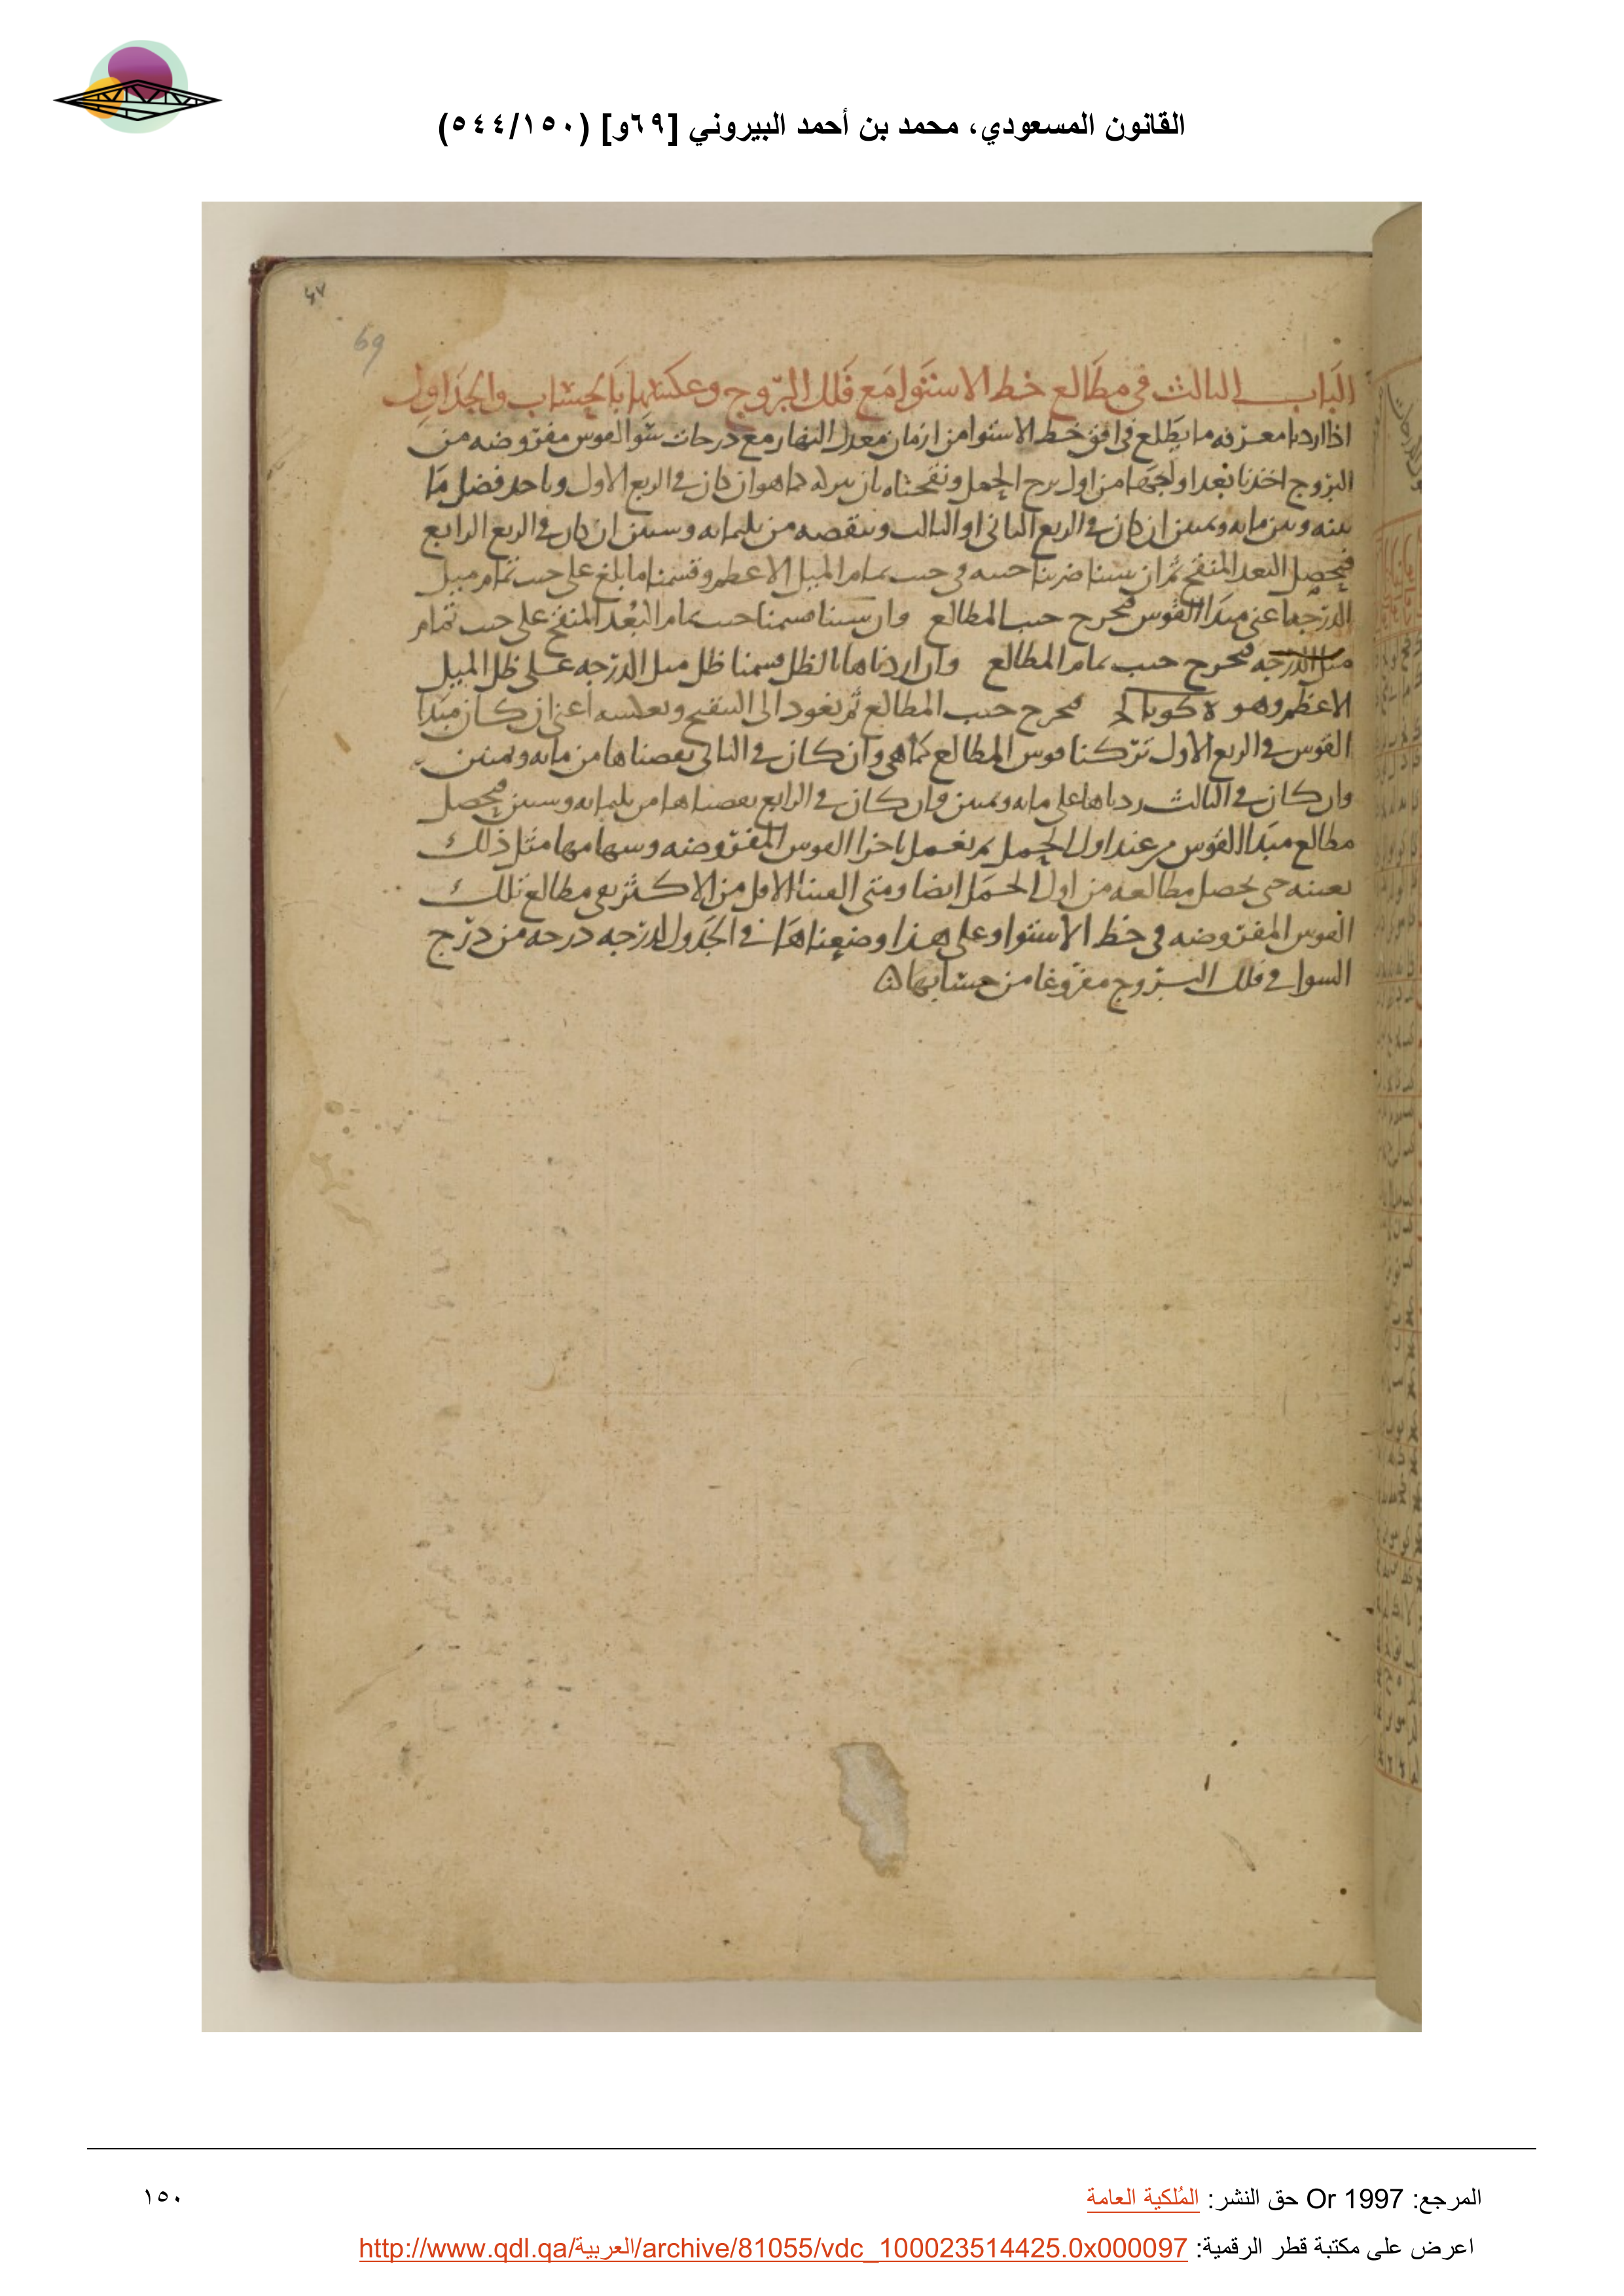 القانون المسعودي، محمد بن أحمد البيروني [٦٩و] (٥٤٤/١٥٠)
٤٧
69
الباب الثالث في مطالع خط الاستوا مع فلك البروج وعكسها بالحساب والجداول
اذا اردنا معرفه ما يطلع في افق خط الاستوا من ازمان معدل النهار مع درجات سوا لقوس مفروضه من
البروج اخذنا بعد اولها من اول برج الحمل ونقحناه بان نتركه كما هو ان كان في الربع الاول وناخذ فضل ما
بينه وبين مايه وثمنين ان كان في الربع الثاني او الثالث وننقصه من ثلثمايه وستين ان كان في الربع الرابع
فيحصل البعد المنقح ثم ان شينا ضربنا جيبه في جيب تمام الميل الاعظم وقسمنا ما بلغ على جيب تمام ميل
الدرجه اعني مبدا القوس فيخرج جيب المطالع وان شينا قسمنا جيب تمام البعد المنقح على جيب تمام
ميل الدرجه فيخرج جيب تمام المطالع وان اردناها بالظل قسمنا ظل ميل الدرجه على ظل الميل
الاعظم وهو فيخرج جيب المطالع ثم نعود الى التنقيح وبعكسه اعني ان كان مبدا
القوس في الربع الاول تركنا قوس المطالع كما هي وان كان في الثاني نقصناها من مايه وثمنين
وان كان في الثالث زدناها على مايه وثمنين وان كان في الرابع نقصناها من ثلثمايه وستين فيحصل
مطالع مبدا القوس من عند اول الحمل ثم نعمل باخر القوس المفروضه وسهامها مثل ذلك
بعينه حتى يحصل مطالعه من اول الحمل ايضا ومتى القينا الاقل من الاكثر بقي مطالع تلك
القوس المفروضه في خط الاستوا وعلى هذا وضعناها في الجدول لدرجه درجه من درج
السوا في فلك البروج مفروغا من حسابها
المرجع: Or 1997 حق النشر: المُلكية العامة
١٥٠
اعرض على مكتبة قطر الرقمية: http://www.qdl.qa/العربية/archive/81055/vdc_100023514425.0x000097